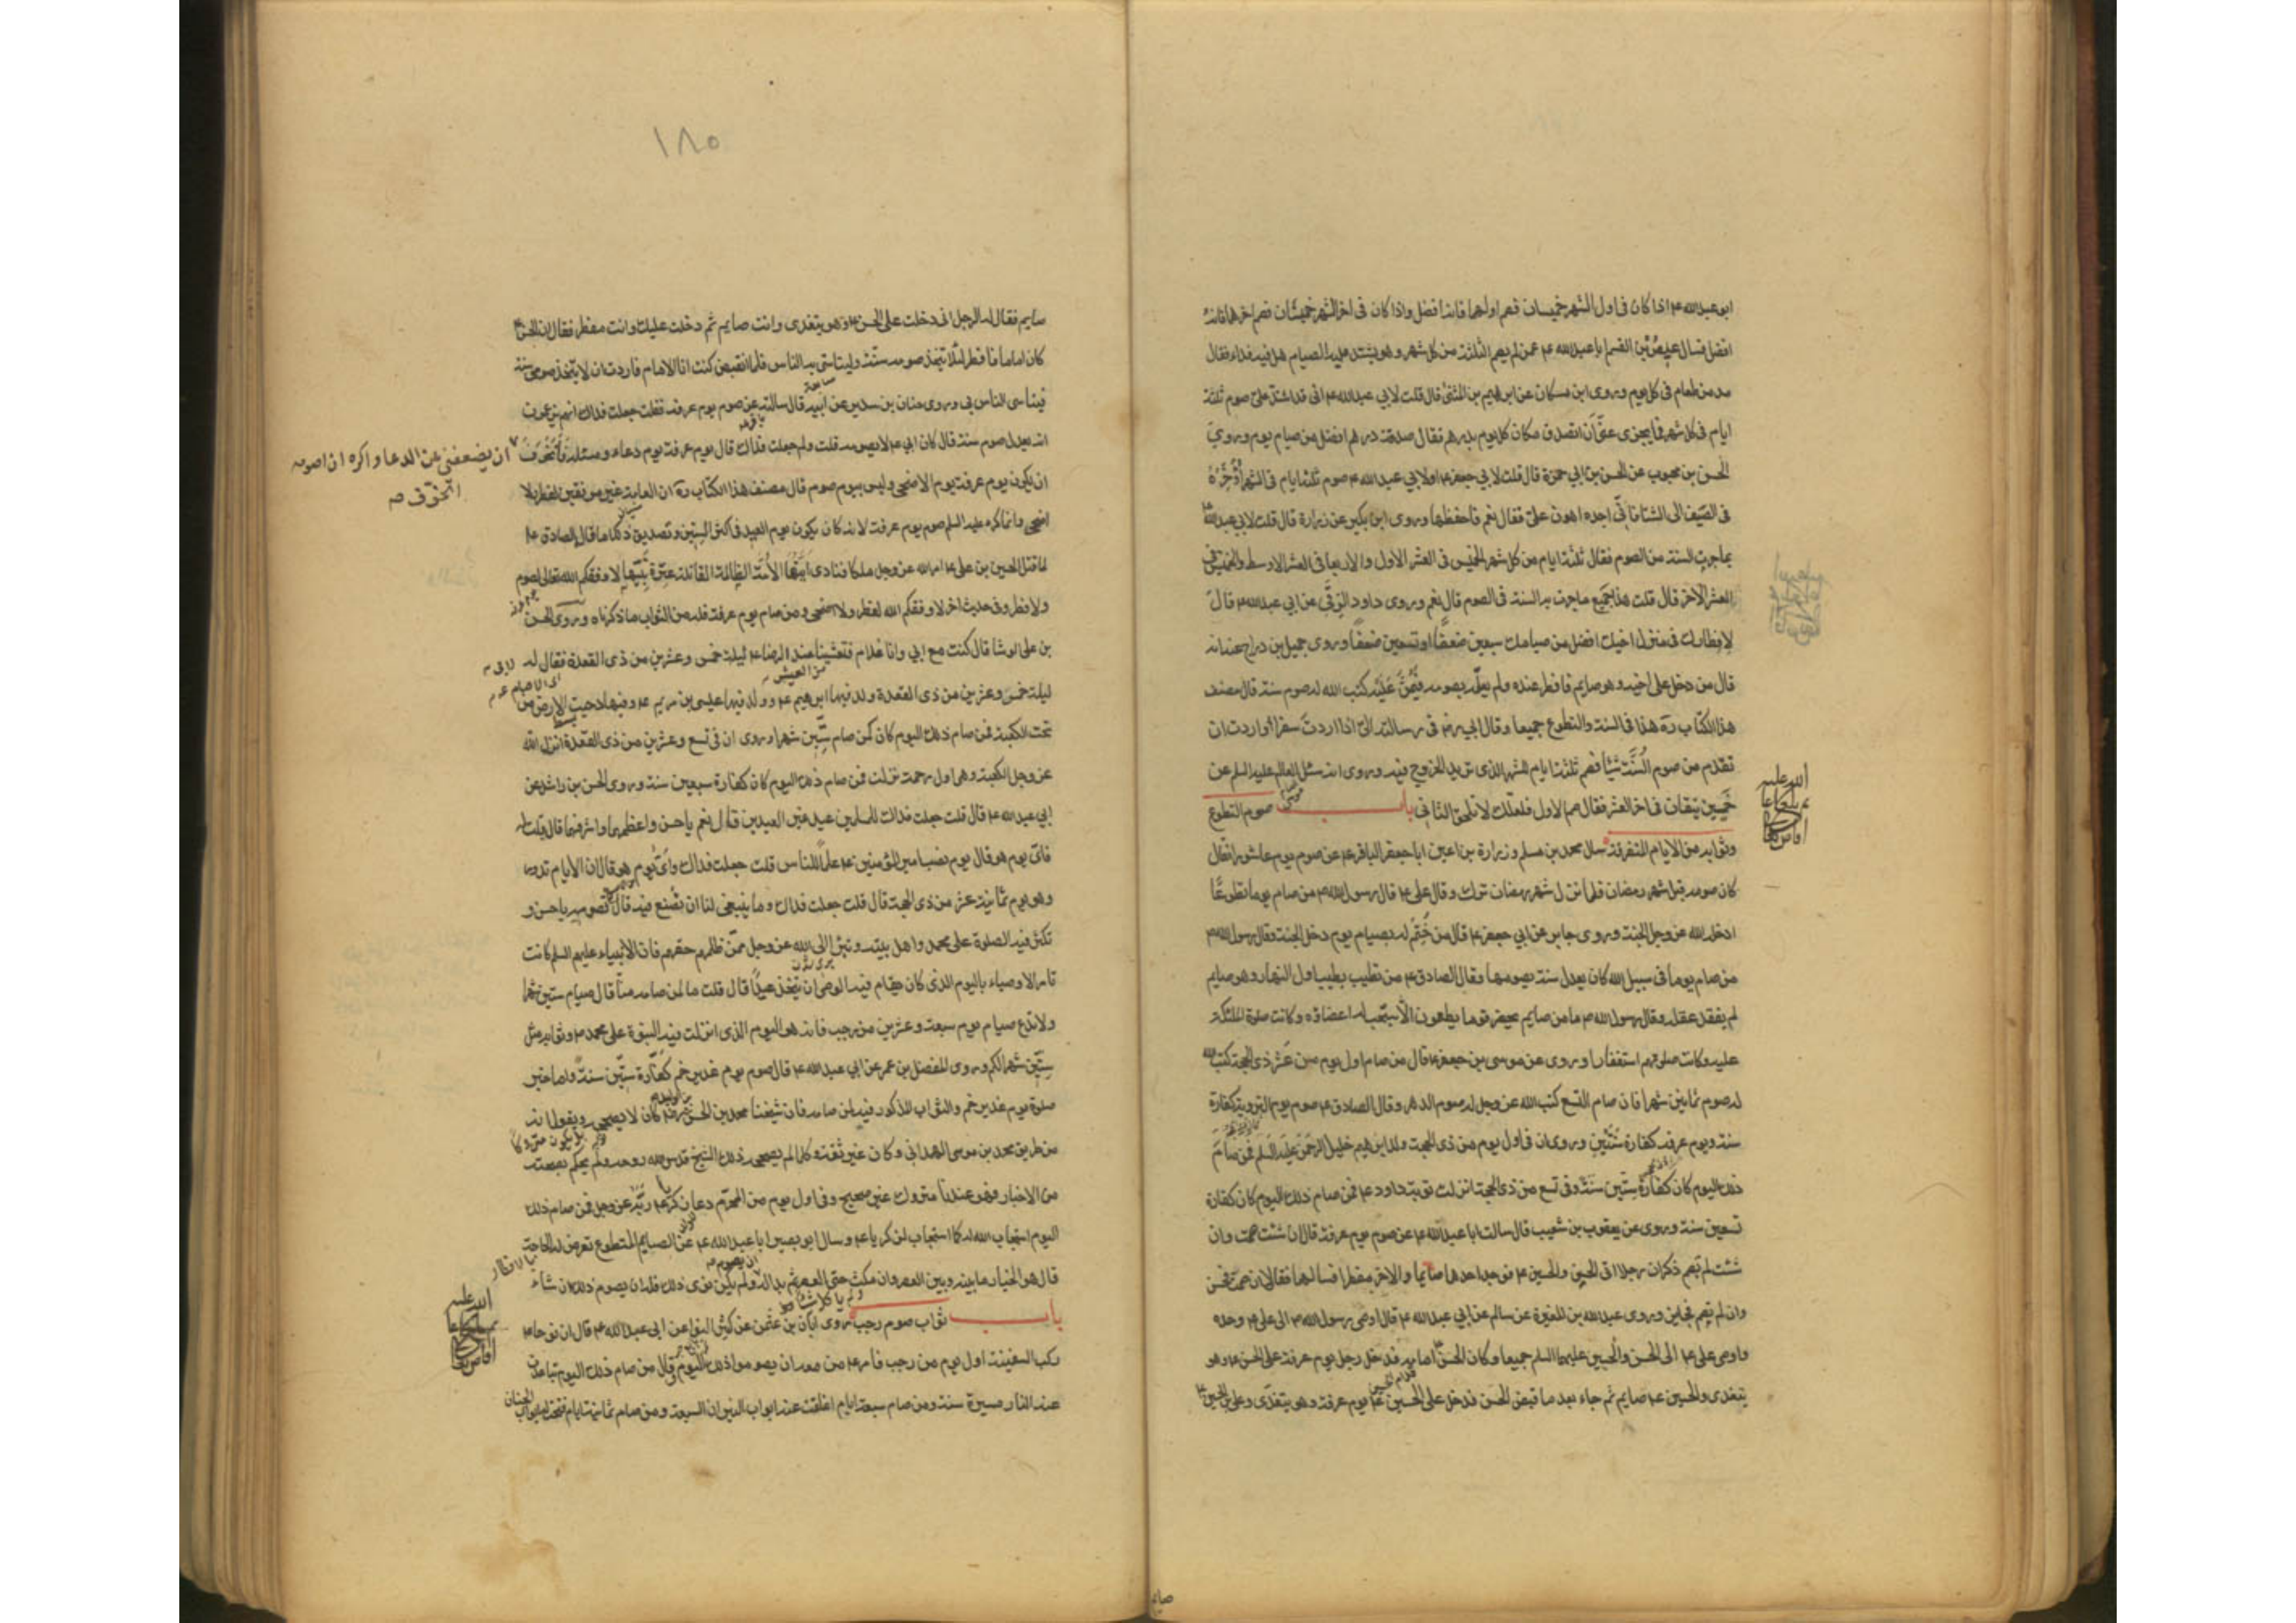 ابو عبد الله ع اذا كان فى اول الشهر خميسان فصم اولهما فانه افضل واذا كان فى اخر الشهر خميسان فصم اخرهما فانه
افضل فسال عيص بن القسم ابا عبد الله ع عمن لم يصم الثلثة من كل شهر وهو يشتد عليه الصيام هل فيه فداء فقال
مد من طعام فى كل يوم وروى ابن مسكان عن ابرهيم بن المثنى قال قلت لابي عبد الله ع انى قد اشتد على صوم ثلثة
ايام فى كل شهر فما يجزى عنى أن اتصدق مكان كل يوم بدرهم فقال صدقة درهم افضل من صيام يوم وروى
الحسن بن محبوب عن الحسن بن ابي حمزة قال قلت لابي جعفر ع او لابي عبد الله ع صوم ثلثة ايام فى الشهر أؤخره
فى الصيف الى الشتا فانى اجده اهون على فقال نعم فاحفظها وروى ابن بكير عن زرارة قال قلت لابي عبد الله ع
بما جرت السنة من الصوم فقال ثلثة ايام من كل شهر الخميس فى العشر الاول والاربعا فى العشر الاوسط والخميس فى
العشر الاخر قال قلت هذا جميع ما جرت به السنة فى الصوم قال نعم وروى داود الرقى عن ابي عبد الله ع قال
لافطارك فى منزل اخيك افضل من صيامك سبعين ضعفا او تسعين ضعفا وروى جميل بن دراج عنه انه
قال من دخل على اخيه وهو صايم فافطر عنده ولم يعلمه بصومه فيمن عليه كتب الله له صوم سنة قال مصنف
هذا الكتاب ره هذا فى السنة والتطوع جميعا وقال ابي رض فى رسالته الى اذا اردت سفرا أو اردت ان
تقدم من صوم السنة شيئا فصم ثلثة ايام للشهر الذى تريد الخروج فيه وروى انه سئل العالم عليه السلم عن
خميسين يتفقان فى اخر العشر فقال صم الاول فلعلك لا تلحق الثانى باب صوم التطوع
وثوابه من الايام المتفرقة سال محمد بن مسلم وزرارة بن اعين ابا جعفر الباقر ع عن صوم يوم عاشورا فقال
كان صومه قبل شهر رمضان فلما نزل شهر رمضان ترك وقال على ع قال رسول الله ص من صام يوما تطوعا
ادخله الله عز وجل الجنة وروى جابر عن ابي جعفر ع قال من ختم له بصيام يوم دخل الجنة وقال رسول الله ص
من صام يوما فى سبيل الله كان يعدل سنة يصومها وقال الصادق ع من تطيب بطيب اول النهار وهو صايم
لم يفقد عقله وقال رسول الله ص ما من صايم يحضر قوما يطعمون الا سبحت له اعضاؤه وكانت صلوة الملئكة
عليه وكانت صلوتهم استغفارا وروى عن موسى بن جعفر ع قال من صام اول يوم من عشر ذى الحجة كتب الله
له صوم ثمانين شهرا فان صام التسع كتب الله عز وجل له صوم الدهر وقال الصادق ع صوم يوم التروية كفارة
سنة ويوم عرفة كفارة سنتين وروى ان فى اول يوم من ذى الحجة ولد ابرهيم خليل الرحمن عليه السلم فمن صام
ذلك اليوم كان كفارة ستين سنة وفى تسع من ذى الحجة انزلت توبة داود ع فمن صام ذلك اليوم كان كفارة
تسعين سنة وروى عن يعقوب بن شعيب قال سالت ابا عبد الله ع عن صوم يوم عرفة قال ان شئت صمت وان
شئت لم تصم ذكران رجلا اتى الحسن والحسين ع فوجد احدهما صايما والاخر مفطرا فسالهما فقالا ان صمت فحسن
وان لم تصم فجايز وروى عبد الله بن المغيرة عن سالم عن ابي عبد الله ع قال اوصى رسول الله ص الى على ع وحده
واوصى على ع الى الحسن والحسين عليهما السلم جميعا وكان الحسن ع امامه فدخل رجل يوم عرفة على الحسن ع وهو
يتغدى والحسين ع صايم ثم جاء بعد ما قبض الحسن فدخل على الحسين ع يوم عرفة وهو يتغدى وعلى بن الحسين ع
صايم
١٨٥
صايم فقال له الرجل انى دخلت على الحسن ع وهو يتغدى وانت صايم ثم دخلت عليك وانت مفطر فقال ان الحسن ع
كان اماما فافطر لئلا يتخذ صومه سنة وليتاسى به الناس فلما ان قبض كنت انا الامام فاردت ان لا يتخذ صومى سنة
فيتاسى الناس بى وروى حنان بن سدير عن ابيه قال سالته عن صوم يوم عرفة فقلت جعلت فداك انهم يزعمون
انه يعدل صوم سنة قال كان ابي ع لا يصومه قلت ولم جعلت فداك قال يوم عرفة يوم دعاء ومسئلة فأتخوف
ان يضعفنى عن الدعا واكره ان اصومه
اتخوف
ان يكون يوم عرفة يوم الاضحى وليس بيوم صوم قال مصنف هذا الكتاب ره ان العامة غير موفقين لفطر ولا
اضحى وانما كره عليه السلم صوم يوم عرفة لانه كان يكون يوم العيد فى اكثر السنين وتصديق ذلك ما قال الصادق ع
لما قتل الحسين بن على ع امر الله عز وجل ملكا فنادى ايتها الامة الظالمة القاتلة عترة نبيها لا وفقكم الله تعالى لصوم
ولا فطر وفى حديث اخر لا وفقكم الله لفطر ولا اضحى ومن صام يوم عرفة فله من الثواب ما ذكرناه وروى الحسن
بن على الوشا قال كنت مع ابي وانا غلام فتعشينا عند الرضا ع ليلة خمس وعشرين من ذى القعدة فقال له
ليلة خمس وعشرين من ذى القعدة ولد فيها ابرهيم ع وولد فيها عيسى بن مريم ع وفيها دحيت الارض من
تحت الكعبة فمن صام ذلك اليوم كان كمن صام ستين شهرا وروى ان فى تسع وعشرين من ذى القعدة انزل الله
عز وجل الكعبة وهى اول رحمة نزلت فمن صام ذلك اليوم كان كفارة سبعين سنة وروى الحسن بن راشد عن
ابي عبد الله ع قال قلت جعلت فداك للمسلمين عيد غير العيدين قال نعم يا حسن واعظمهما واشرفهما قال قلت له
فاى يوم هو قال يوم نصب امير المؤمنين ع علما للناس قلت جعلت فداك واى يوم هو قال ان الايام تدور
وهو يوم ثمانية عشر من ذى الحجة قال قلت جعلت فداك وما ينبغى لنا ان نصنع فيه قال تصومه يا حسن و
تكثر فيه الصلوة على محمد واهل بيته وتبرأ الى الله عز وجل ممن ظلمهم حقهم فان الانبياء عليهم السلم كانت
تامر الاوصياء باليوم الذى كان يقام فيه الوصى ان يتخذ عيدا قال قلت ما لمن صامه منا قال صيام ستين شهرا
ولا تدع صيام يوم سبعة وعشرين من رجب فانه هو اليوم الذى انزلت فيه النبوة على محمد ص وثوابه مثل
ستين شهرا لكم وروى المفضل بن عمر عن ابي عبد الله ع قال صوم يوم غدير خم كفارة ستين سنة واما خبر
صلوة يوم غدير خم والثواب المذكور فيه لمن صامه فان شيخنا محمد بن الحسن رض كان لا يصححه ويقول انه
من طريق محمد بن موسى الهمدانى وكان غير ثقة وكلما لم يصححه ذلك الشيخ قدس الله روحه ولم يحكم بصحته
من الاخبار فهو عندنا متروك غير صحيح وفى اول يوم من المحرم دعا زكريا ع ربه عز وجل فمن صام ذلك
اليوم استجاب الله له كما استجاب لزكريا ع وسال ابو بصير ابا عبد الله ع عن الصايم المتطوع تعرض له الحاجة
قال هو بالخيار ما بينه وبين العصر وان مكث حتى العصر ثم بدا له ولم يكن نوى ذلك فله ان يصوم ذلك ان شاء
باب ثواب صوم رجب روى ابان بن عثمن عن كثير النوا عن ابى عبد الله ع قال ان نوحا ع
ركب السفينة اول يوم من رجب فامر ع من معه ان يصوموا ذلك اليوم وقال من صام ذلك اليوم تباعدت
عنه النار مسيرة سنة ومن صام سبعة ايام اغلقت عنه ابواب النيران السبعة ومن صام ثمانية ايام فتحت له ابواب الجنان